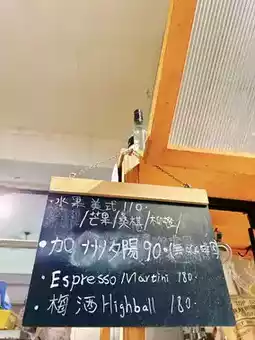 水果美式 110.
/芒果/桑椹/
• 加州夕陽 90.(無咖啡因)
• Espresso Martini 180.
• 梅酒 Highball 180.